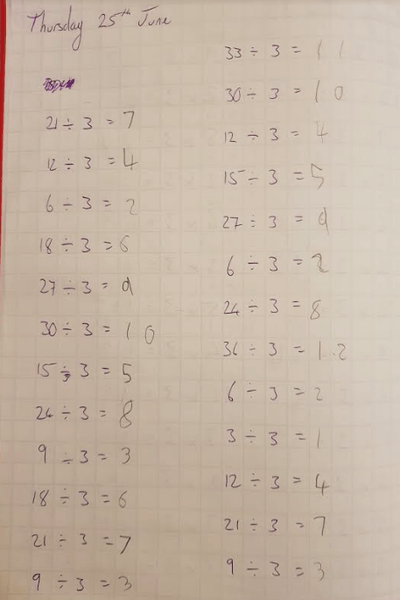 Thursday 25th June
21 ÷ 3 = 7
12 ÷ 3 = 4
6 ÷ 3 = 2
18 ÷ 3 = 6
27 ÷ 3 = 9
30 ÷ 3 = 10
15 ÷ 3 = 5
24 ÷ 3 = 8
9 ÷ 3 = 3
18 ÷ 3 = 6
21 ÷ 3 = 7
9 ÷ 3 = 3
33 ÷ 3 = 11
30 ÷ 3 = 10
12 ÷ 3 = 4
15 ÷ 3 = 5
27 ÷ 3 = 9
6 ÷ 3 = 2
24 ÷ 3 = 8
36 ÷ 3 = 12
6 ÷ 3 = 2
3 ÷ 3 = 1
12 ÷ 3 = 4
21 ÷ 3 = 7
9 ÷ 3 = 3